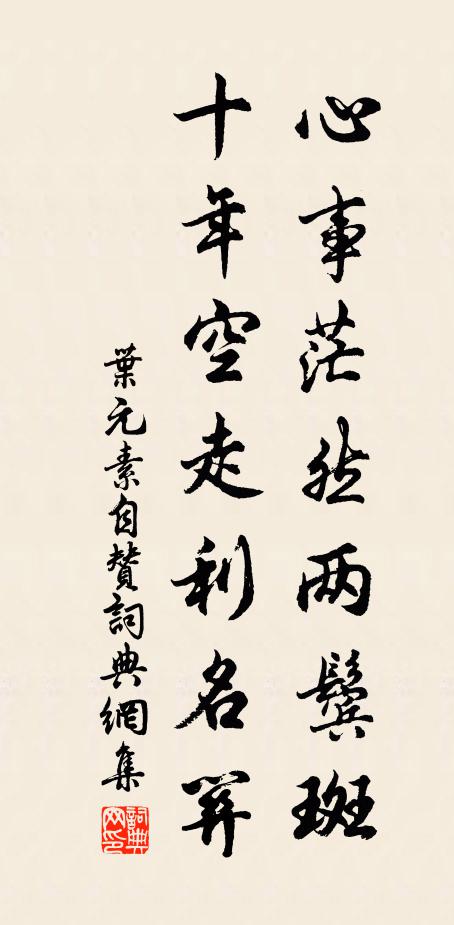 心事茫然两鬢斑
十年空走利名關
葉元素自贊詞典網集
詞典网印